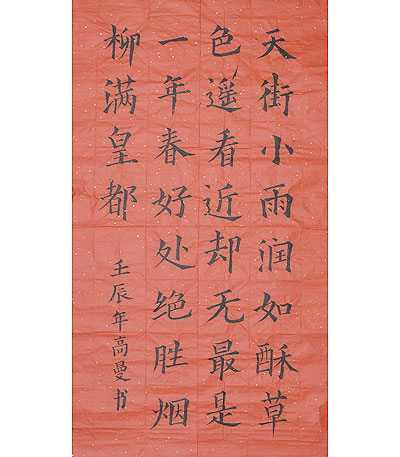 天街小雨润如酥草
色遥看近却无最是
一年春好处绝胜烟
柳满皇都
壬辰年高曼书